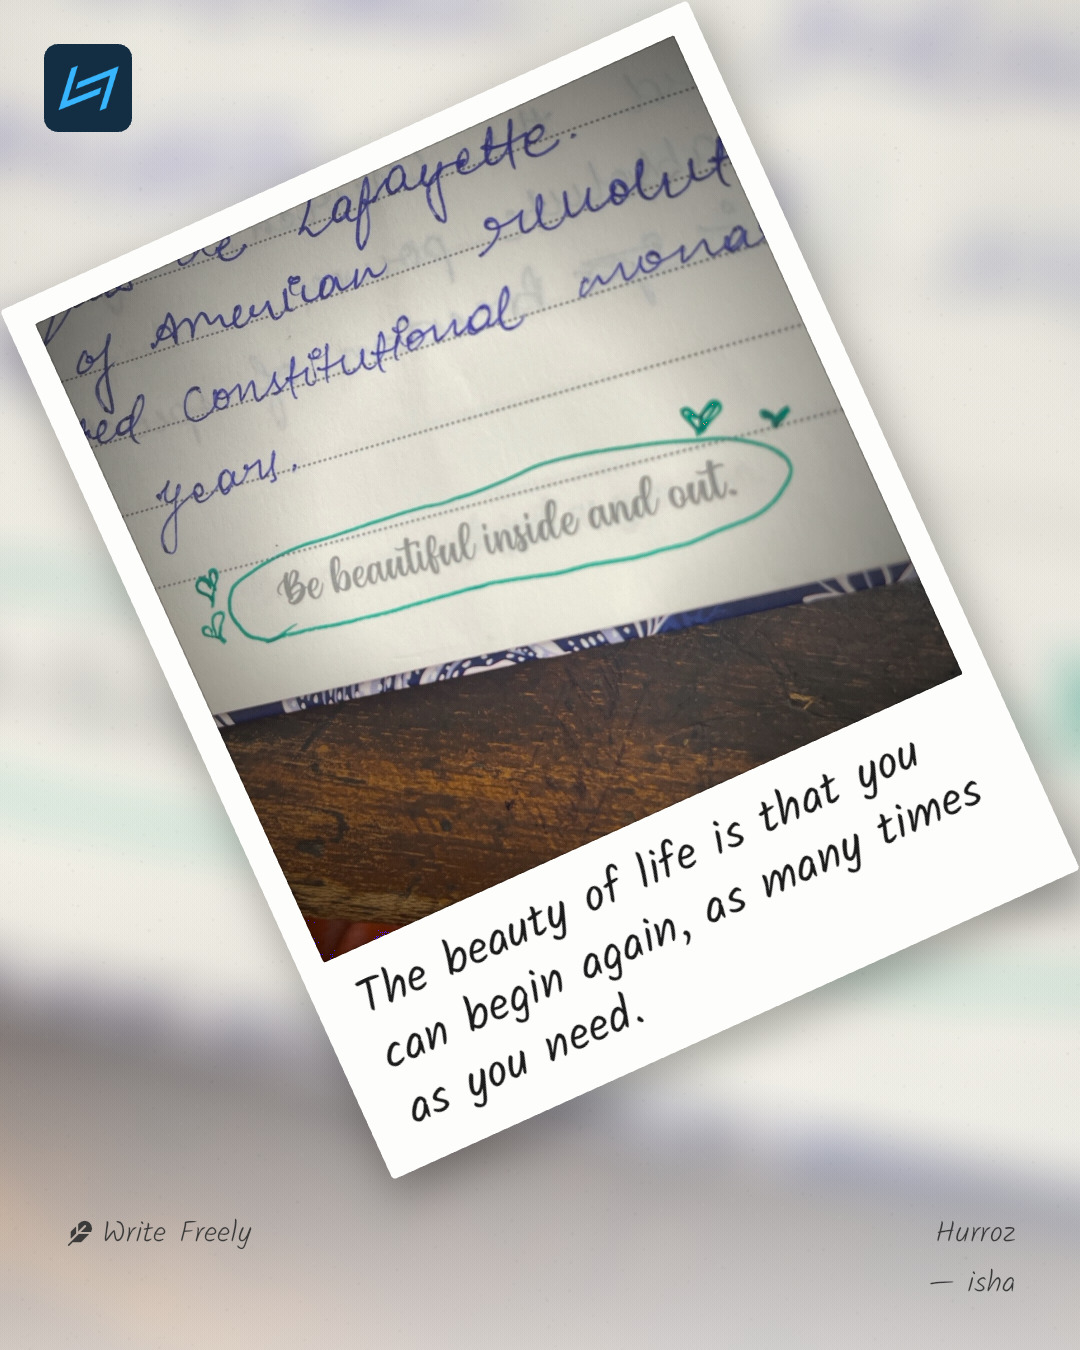 de Lafayette.
of American
Constitutional
years.
Be beautiful inside and out.
The beauty of life is that you
can begin again, as many times
as you need.
Write Freely
Hurroz
— isha